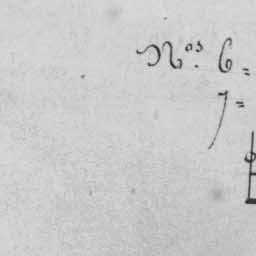 Nos. 6=
7=